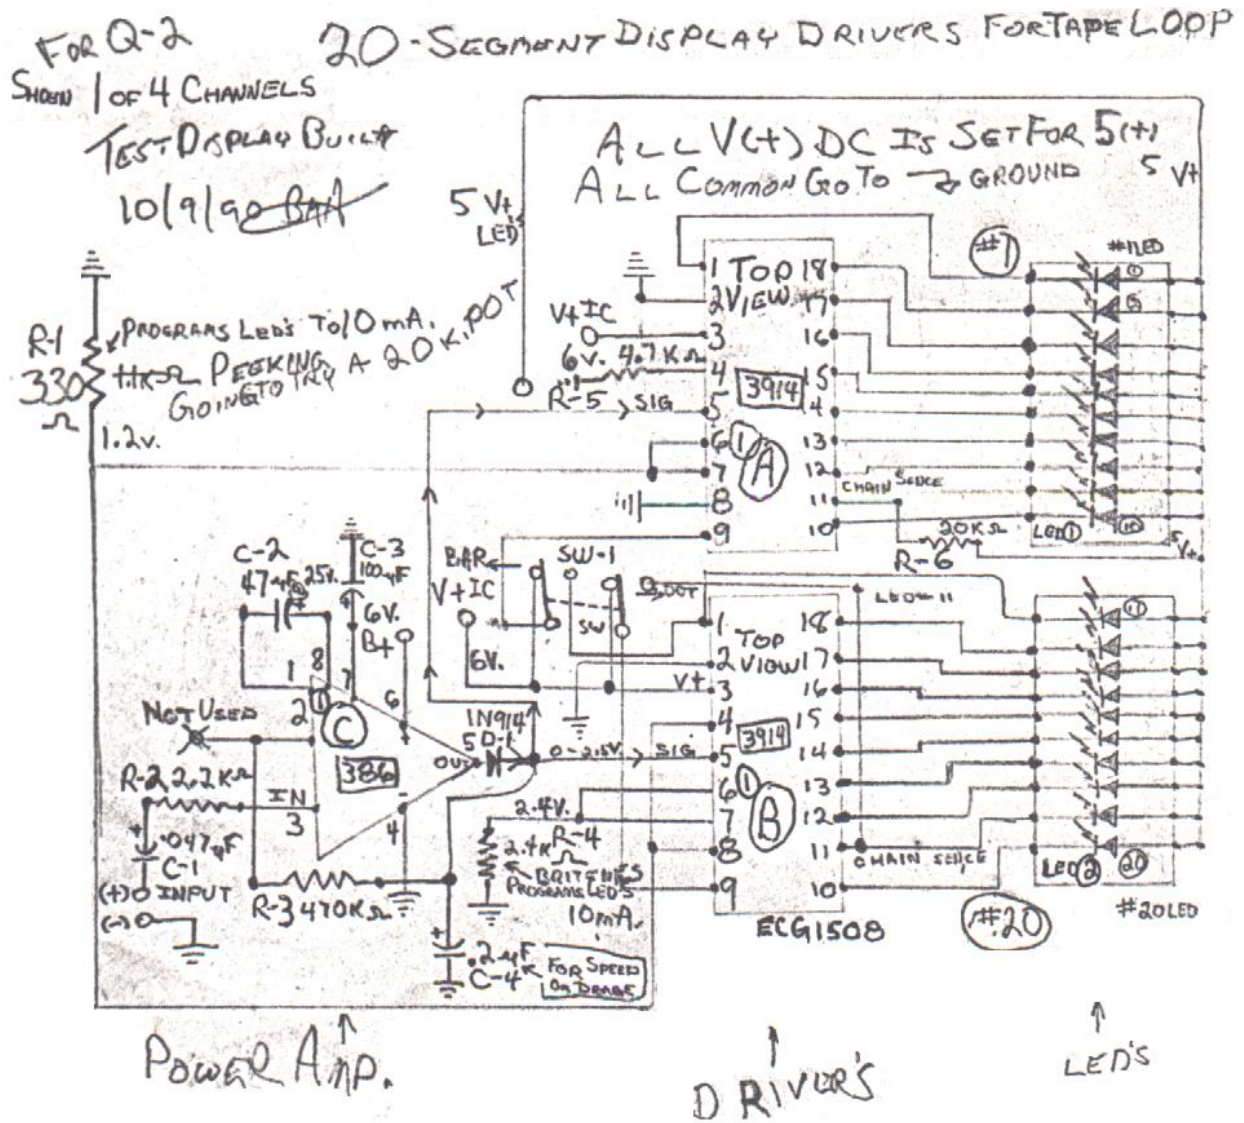 FOR Q-2
20-SEGMENT DISPLAY DRIVERS FOR TAPE LOOP
SHOWN 1 OF 4 CHANNELS
TEST DISPLAY BUILT
10/9/90
ALL V(+) DC IS SET FOR 5(+)
ALL COMMON GO TO → GROUND
5 V+
5 V+
LED'S
#1
#1 LED
R-1
330
Ω
PROGRAMS LED'S TO 10 mA.
PEEKING
GOING TO TRY A 20 K. POT
1.2v.
V+IC
6v. 4.7 KΩ
R-5
SIG
1 TOP 18
2 VIEW 17
3 16
4 15
3914
5 14
6 1 13
A
7 12
8 11
9 10
CHAIN SENCE
20KΩ
R-6
LED 1
10
5 V+
C-2
47 µF @ 25v.
C-3
100 µF
6V.
B+
BAR
SW-1
DOT
V+IC
SW
6V.
LED-11
11
1 18
TOP
2 VIEW 17
V+ 3 16
4 15
3914
5 14
6 1 13
B
7 12
8 11
9 10
CHAIN SENCE
LED 2
20
#20
#20 LED
ECG1508
NOT USED
1 8
7
2 1 C 6
386
OUT 5
IN
3
4
1N914
D-1
0-2.5V. SIG
R-2 2.2KΩ
.047 µF
C-1
(+) INPUT
(-)
R-3 470KΩ
2.4V.
R-4
2.4K Ω
BRITENES
PROGRAMS LED'S
10mA.
.2 µF
C-4
FOR SPEED
POWER AMP.
DRIVER'S
LED'S